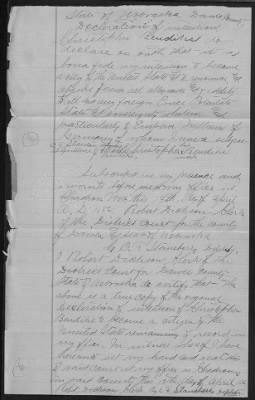 State of Nebraska Dawes County
Declaration of intention
Christopher
declare on oath that it is
bona fide my intention to become
citizen of the United States of America &
and renounce all allegiance & fidelity
to all and any foreign Prince Potentate
State & Sovereignty whatever &
particularly to Emperor William of
Germany of whom I was a subject
Christopher
Subscribed in my presence and
sworn to before me at my office in
Chadron this 13th day of April
A. D. Robert Dickson Clerk
of the District Court for the county
of Dawes Nebraska
by C. R. Stansberry Deputy
I Robert Dickson, Clerk of the
District Court for Dawes County
State of Nebraska do certify that the
above is a true copy of the original
declaration of intention of Christopher
to become a citizen of the
United States remaining of record
my office. In witness whereof I have
hereunto set my hand and seal of
said court at my office in Chadron
in said County this 13th day of April
Robt Dickson Clerk by Stansberry Deputy